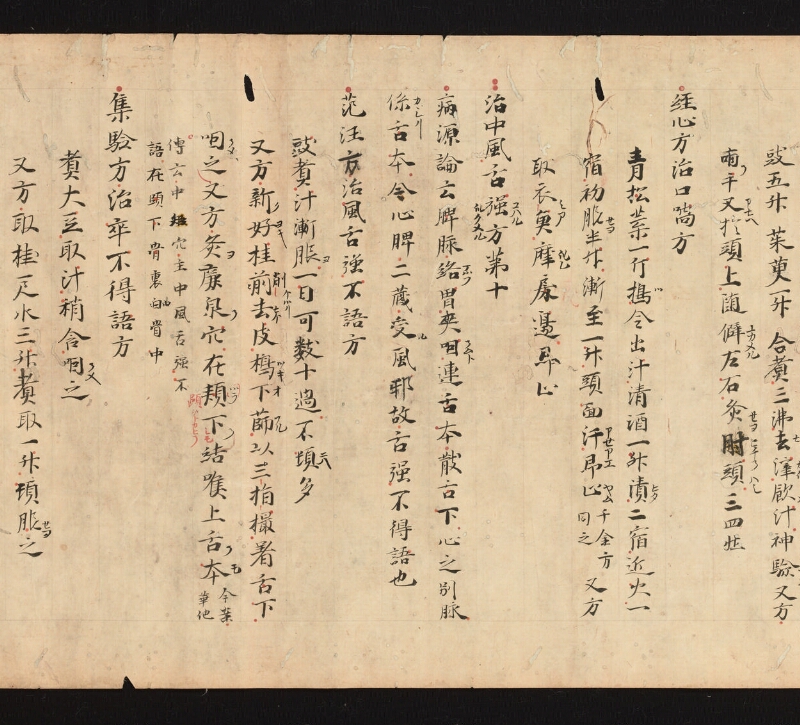 豉五升茱萸一升合煑三沸去滓飲汁神驗又方
喃千又於頭上菌僻左右灸肘頭三四壯
経心方治口喎方
青松葉一斤搗令出汁清酒一升漬二宿近火一
宿初服半升漸至一升頭面汗即止千金方同之又方
取衣奠摩處邊即止
治中風舌强方第十
病源論云脾脉絡胃夾咽連舌本散舌下心之別脉
係舌本今心脾二藏受風耶故舌强不得語也
范汪方治風舌强不語方
豉煑汁漸服一日可數十過不煩多
又方新好桂削去皮檮下篩以三指撮著舌下
咽之又方灸廉泉穴在頬下結喉上舌本今案華他
傳云中矩穴主中風舌强不
語在頤下骨裏曲骨中
集驗方治卒不得語方
煑大豆取汁稍含咽之
又方取桂一尺水三升煑取一升頓服之